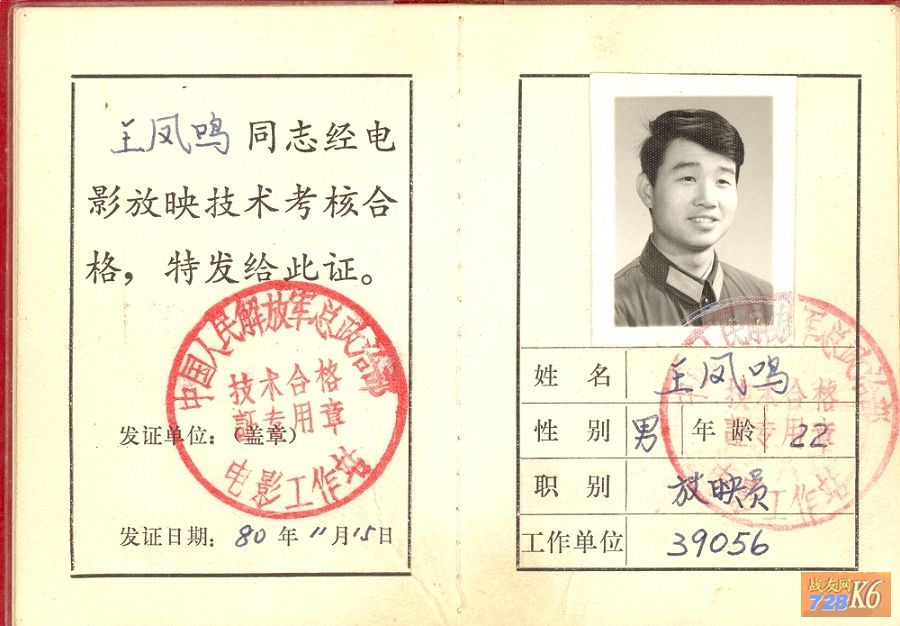 王凤鸣 同志经电
影放映技术考核合
格，特发给此证。
中国人民解放军总政治部
技术合格
証专用章
电影工作站
发证单位：（盖章）
发证日期：80年11月15日
姓 名 王凤鸣
性 别 男 年 龄 22
职 别 放映员
工作单位 39056
人民解放军总政治部
技术合格
証专用章
工作站
战友网
728K6